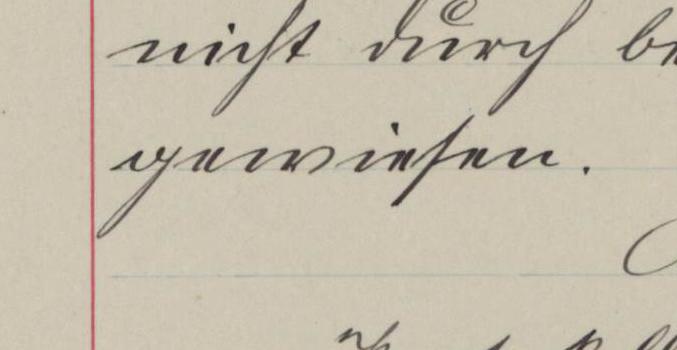 nicht durch be
gewiesen.